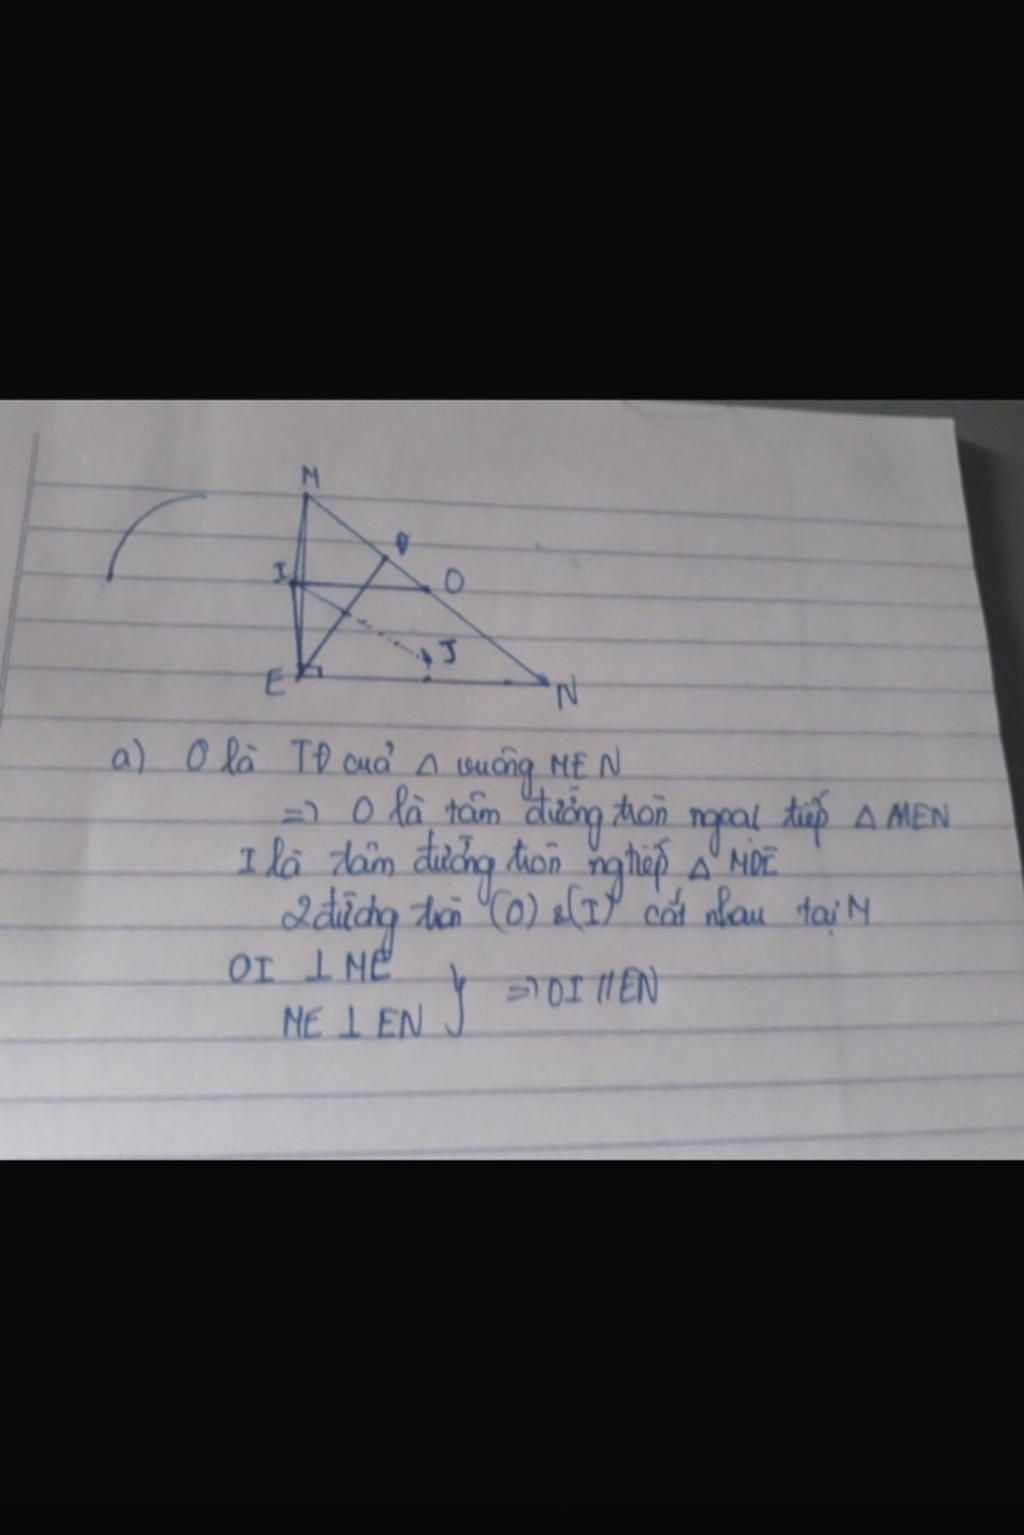 M
D
I
O
J
E
N
a) O là TĐ cuả △ vuông MEN
=> O là tâm đường tròn ngoại tiếp △ MEN
I là tâm đường tròn ngtiếp △ MDE
2 đường tròn (O) & (I) cắt nhau tại M
OI ⊥ ME
ME ⊥ EN } => OI // EN